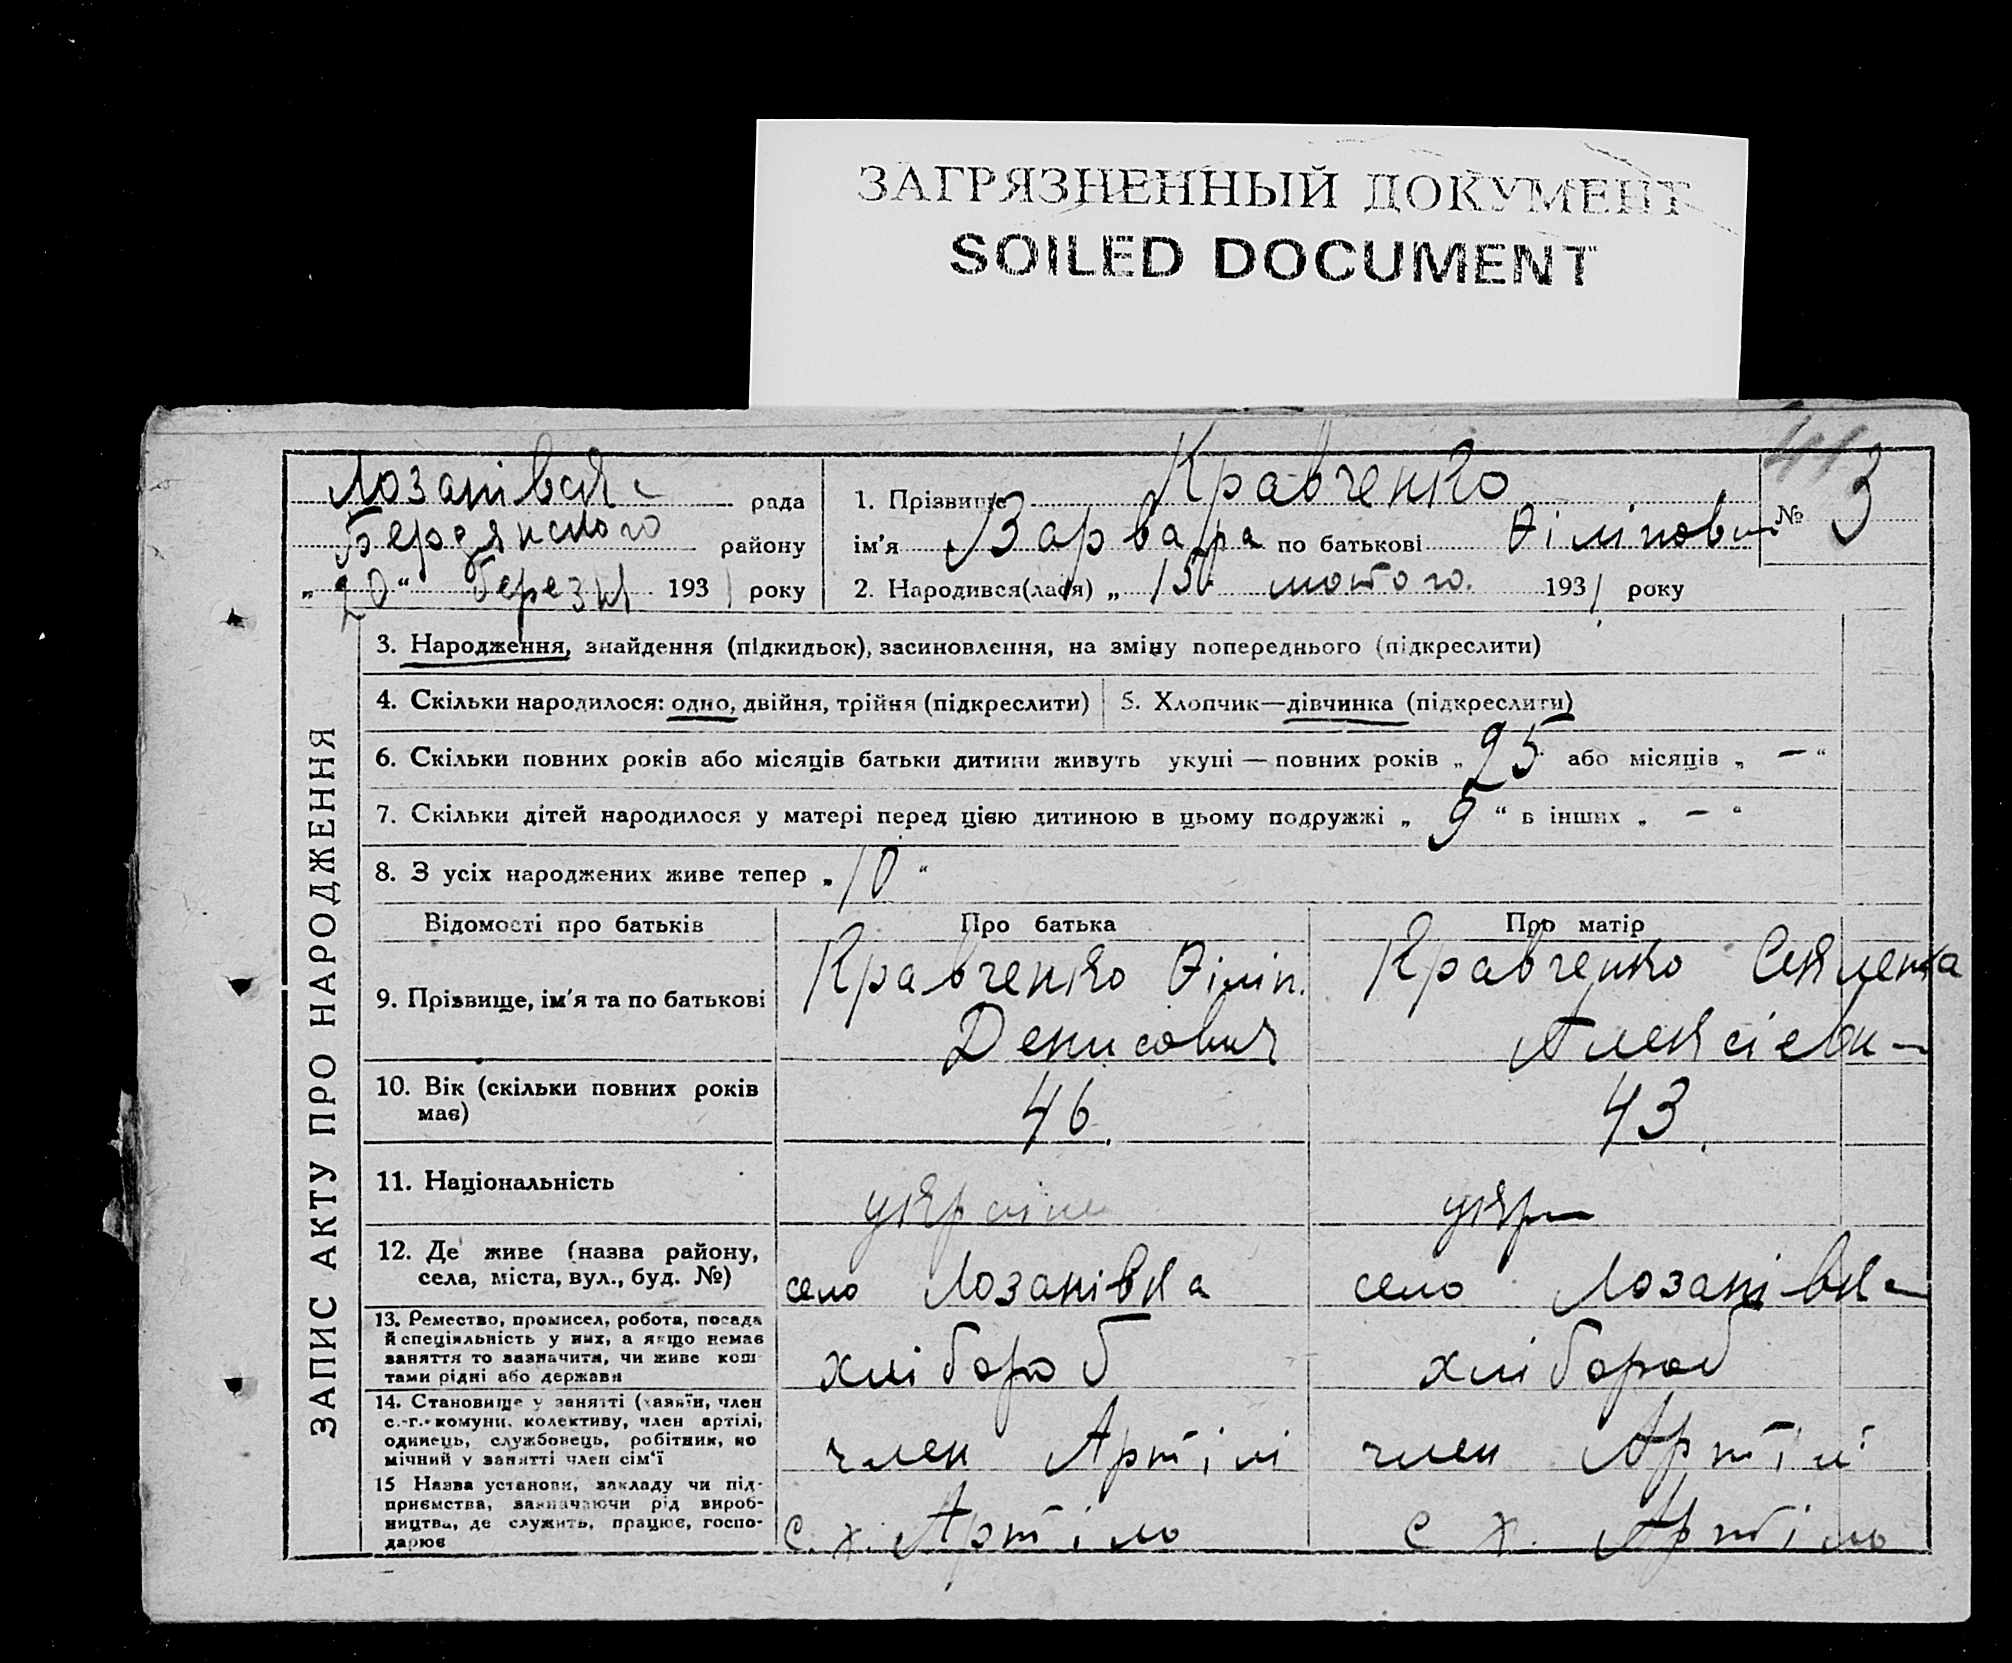 ЗАГРЯЗНЕННЫЙ ДОКУМЕНТ
SOILED DOCUMENT
рада
Бердянского району
„20“ березня 1931 року
1. Прізвище Кравченко
ім'я Варвара по батькові Філіпов
2. Народився(лася) „15 лютого 1931 року
№ 3
ЗАПИС АКТУ ПРО НАРОДЖЕННЯ
3. Народження, знайдення (підкидьок), засиновлення, на зміну попереднього (підкреслити)
4. Скільки народилося: одно, двійня, трійня (підкреслити)
5. Хлопчик—дівчинка (підкреслити)
6. Скільки повних років або місяців батьки дитини живуть укупі — повних років „25 або місяців „ — “
7. Скільки дітей народилося у матері перед цією дитиною в цьому подружжі „ 9 “ в інших „ — “
8. З усіх народжених живе тепер „10“
Відомості про батьків
Про батька
Про матір
9. Прізвище, ім'я та по батькові
Кравченко Філіп.
Денисович
Кравченко
Алексієвн
10. Вік (скільки повних років
має)
46.
43.
11. Національність
україн
укр
12. Де живе (назва району,
села, міста, вул., буд. №)
село Лозанівка
село Лозанівка
13. Ремество, промисел, робота, посада
й спеціяльність у них, а якщо немає
заняття то зазначити, чи живе кош
тами рідні або держави
хлібороб
хлібороб
14. Становище у занятті (хазяїн, член
с.-г. комуни, колективу, член артілі,
одинець, службовець, робітник, по
мічний у занятті член сім'ї
член Артілі
член Артілі
15 Назва установи, закладу чи під-
приємства, зазначаючи рід вироб-
ництва, де служить, працює, госпо-
дарює
с. х. Артіль
с х. Артіль